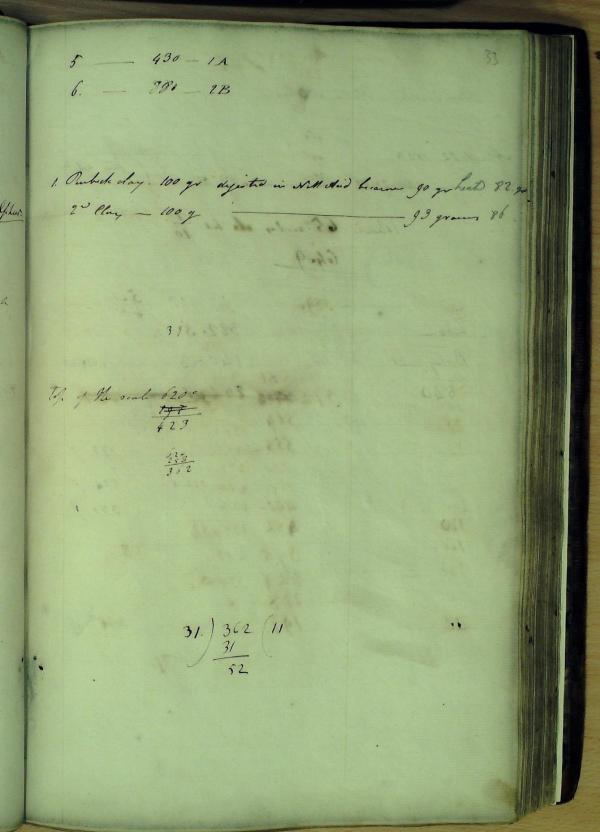 33
5 — 430 — 1A
6. — 380 — 2B
1. Purbeck clay. 100 gr digested in Nitt Acid became 90 gr heat 82 gr
2d Clay — 100 g — 93 grams 86
31
Top of the scale 620
423
362
31) 362 (11
31
52